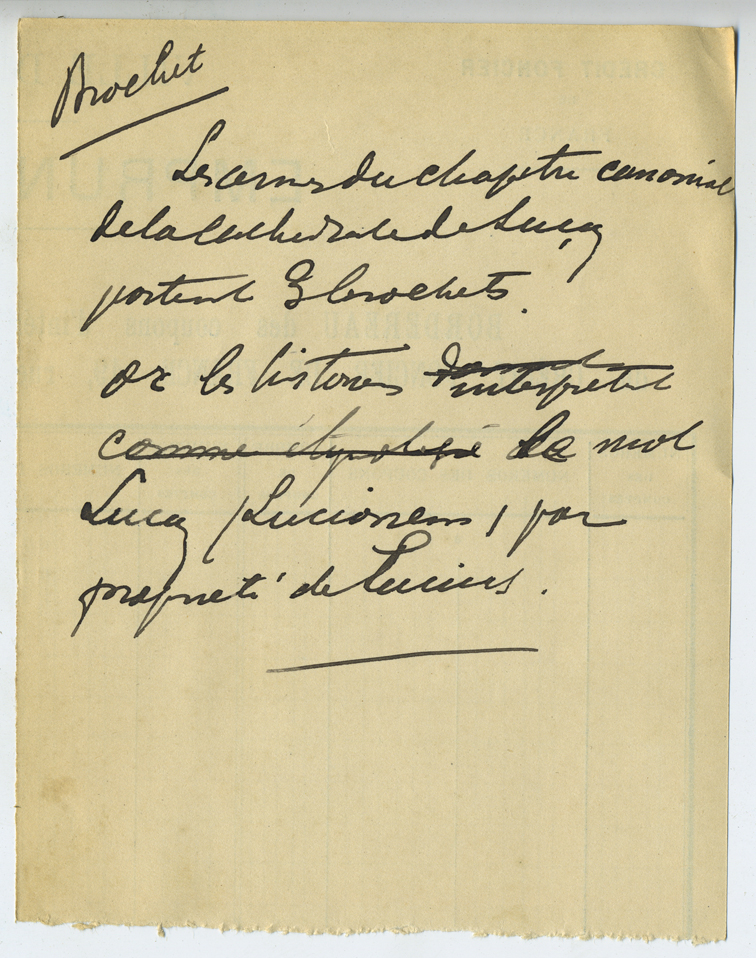 Brochet
Les armes du chapitre canonial
de la Cathédrale de Luçon
portent 3 brochets.
or les historiens interprètent
comme étymologie le mot
Luçon (Lucionem) par
propriété de Lucius.